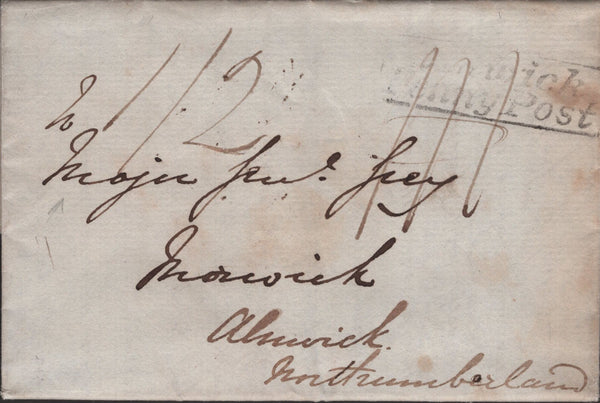 1/2
wick
Penny Post
To
Major Genl. Grey
Morwick
Alnwick
Northumberland